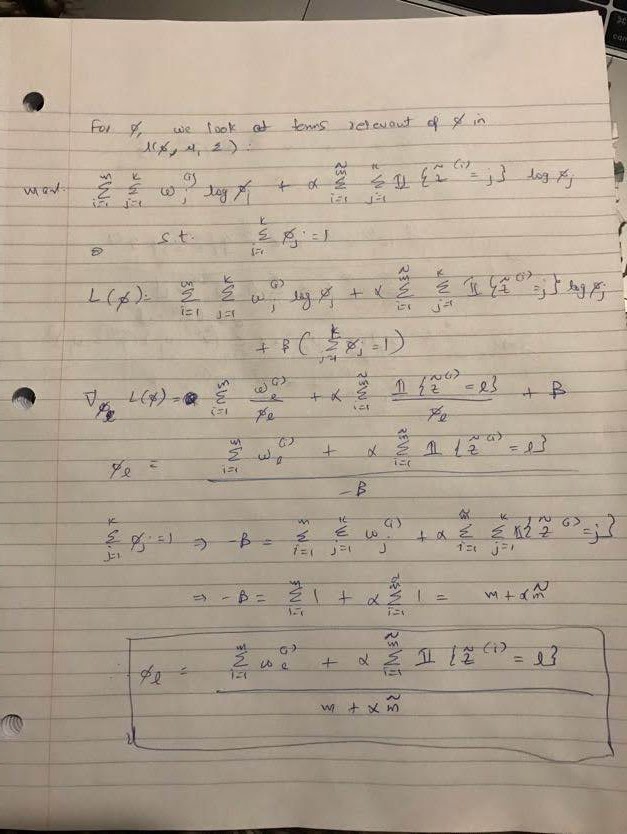 For φ, we look at terms relevant of φ in
l(φ, μ, Σ):
max. Σ_{i=1}^{m} Σ_{j=1}^{k} w_j^{(i)} log φ_j + α Σ_{i=1}^{m̃} Σ_{j=1}^{k} 𝟙{z̃^{(i)} = j} log φ_j
s.t. Σ_{j=1}^{k} φ_j = 1
L(φ) = Σ_{i=1}^{m} Σ_{j=1}^{k} w_j^{(i)} log φ_j + α Σ_{i=1}^{m̃} Σ_{j=1}^{k} 𝟙{z̃^{(i)} = j} log φ_j
+ β ( Σ_{j=1}^{k} φ_j = 1 )
∇_{φ_l} L(φ) = Σ_{i=1}^{m} w_l^{(i)} / φ_l + α Σ_{i=1}^{m̃} 𝟙{z̃^{(i)} = l} / φ_l + β
φ_l = ( Σ_{i=1}^{m} w_l^{(i)} + α Σ_{i=1}^{m̃} 𝟙{z̃^{(i)} = l} ) / -β
Σ_{j=1}^{k} φ_j = 1 ⇒ -β = Σ_{i=1}^{m} Σ_{j=1}^{k} w_j^{(i)} + α Σ_{i=1}^{m̃} Σ_{j=1}^{k} 𝟙{z̃^{(i)} = j}
⇒ -β = Σ_{i=1}^{m} 1 + α Σ_{i=1}^{m̃} 1 = m + α m̃
φ_l = ( Σ_{i=1}^{m} w_l^{(i)} + α Σ_{i=1}^{m̃} 𝟙{z̃^{(i)} = l} ) / m + α m̃